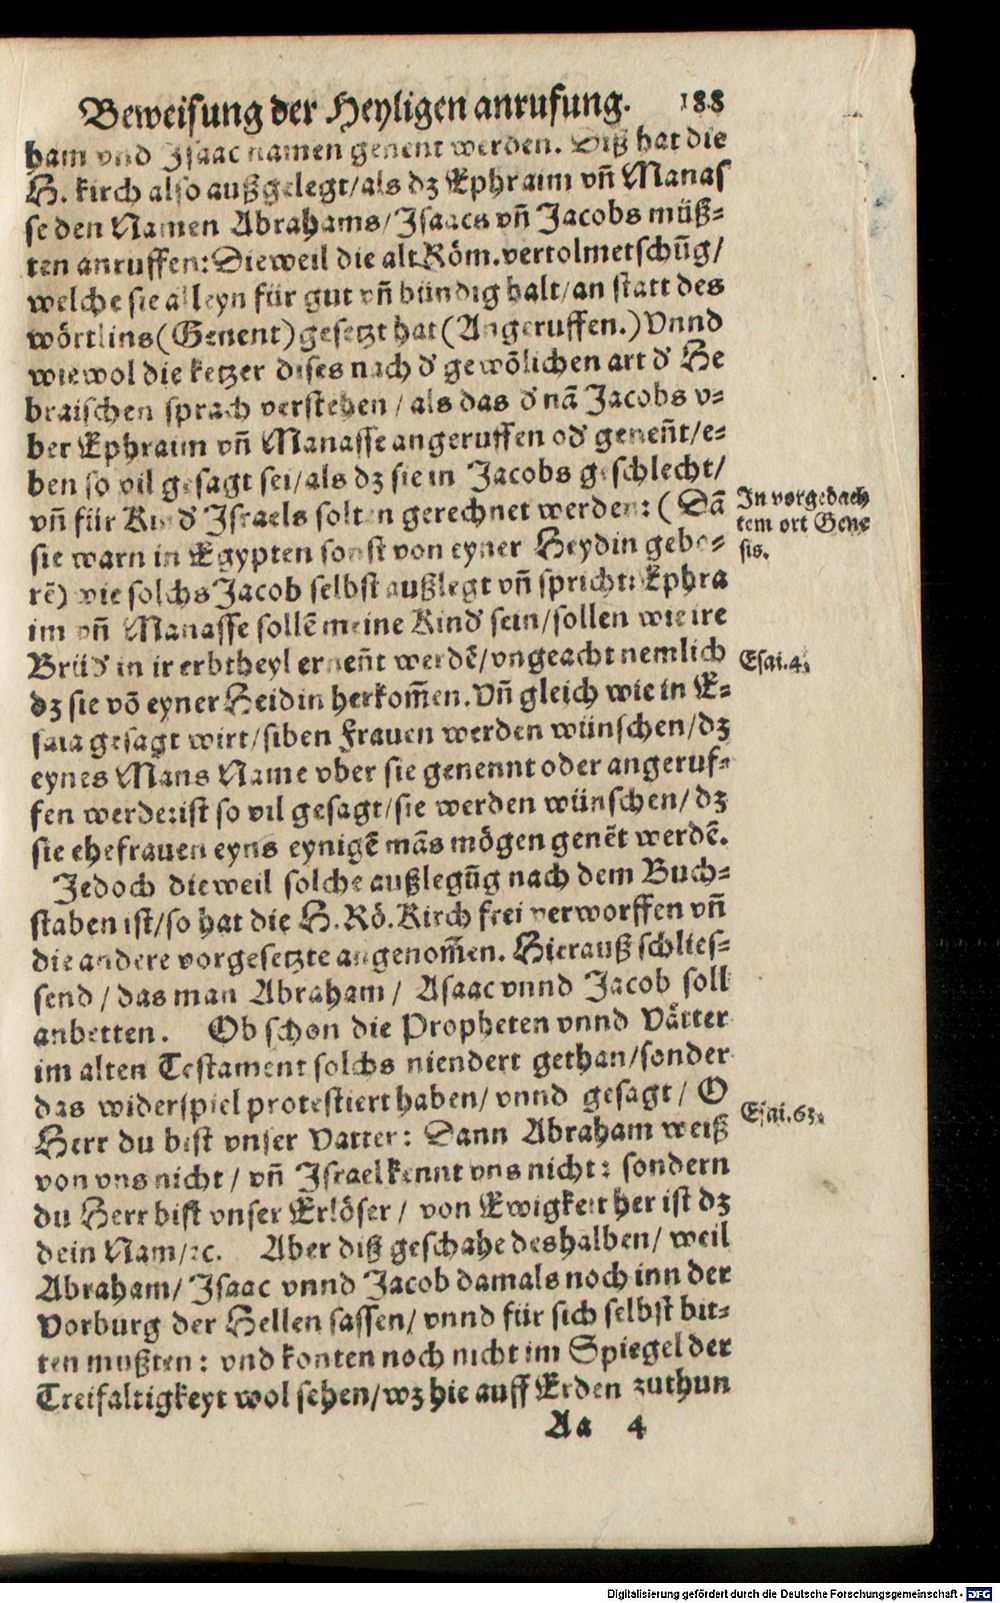 Beweisung der Heyligen anrufung. 188
ham vnd Isaac namen genent werden. Diß hat die
H. kirch also außgelegt/als dz Ephraim vñ Manas
se den Namen Abrahams/Isaacs vñ Jacobs müß-
ten anruffen: Dieweil die alt Röm. vertolmetschũg/
welche sie alleyn für gut vñ bündig halt/an statt des
wörtlins (Genent) gesetzt hat (Angeruffen.) Vnnd
wiewol die ketzer dises nach d' gewõlichen art d' He
braischen sprach verstehen / als das d' nã Jacobs v-
ber Ephraim vñ Manasse angeruffen od' geneñt/e-
ben so vil gesagt sei/als dz sie in Jacobs geschlecht/
vñ für Kind' Israels solten gerechnet werden: (Dã
sie warn in Egypten sonst von eyner Heydin gebo-
rẽ) wie solchs Jacob selbst außlegt vñ spricht: Ephra
im vñ Manasse sollẽ meine Kind' sein/sollen wie ire
Brüd' in ir erbtheyl erneñt werdẽ/vngeacht nemlich
dz sie võ eyner Heidin herkom̃en. Vñ gleich wie in E-
saia gesagt wirt/siben Frauen werden wünschen/dz
eynes Mans Name vber sie genennt oder angeruf-
fen werde: ist so vil gesagt/sie werden wünschen/dz
sie ehefrauen eyns eynigẽ mãs mögen genẽt werdẽ.
Jedoch dieweil solche außlegũg nach dem Buch-
staben ist/so hat die H. Rö. Kirch frei verworffen vñ
die andere vorgesetzte angenom̃en. Hierauß schlies-
send / das man Abraham / Asaac vnnd Jacob soll
anbetten. Ob schon die Propheten vnnd Vätter
im alten Testament solchs niendert gethan/sonder
das widerspiel protestiert haben/ vnnd gesagt / O
Herr du bist vnser Vatter: Dann Abraham weiß
von vns nicht / vñ Israel kennt vns nicht: sondern
du Herr bist vnser Erlöser / von Ewigkeit her ist dz
dein Nam/ꝛc. Aber diß geschahe deshalben/ weil
Abraham/ Isaac vnnd Jacob damals noch inn der
Vorburg der Hellen sassen/ vnnd für sich selbst bit-
ten mußten: vnd konten noch nicht im Spiegel der
Treifaltigkeyt wol sehen/wz hie auff Erden zuthun
Aa 4
In vorgedach
tem ort Gene
sis.
Esai.4.
Esai.63.
Digitalisierung gefördert durch die Deutsche Forschungsgemeinschaft - DFG